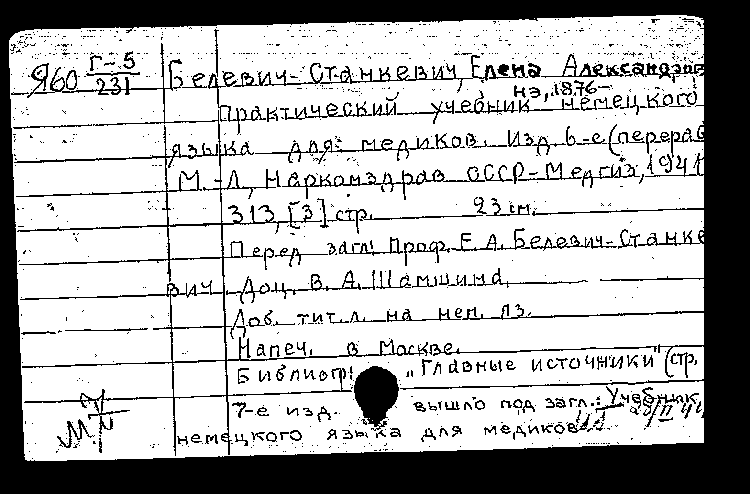 Я60 Г-5/231 Белевич-Станкевич, Елена Александров
на, 1876-
Практический учебник немецкого
языка для медиков. Изд. 6-е (перераб
М.-Л, Наркомздрав СССР-Медгиз, 1941
313, [3] стр. 23 см.
Перед загл: Проф. Е. А. Белевич-Станке
вич. Доц. В. А. Шамшина.
Доб. тит. л. на нем. яз.
Напеч. в Москве.
Библиогр: „Главные источники" (стр.
7-е изд. вышло под загл.: Учебник
немецкого языка для медиков